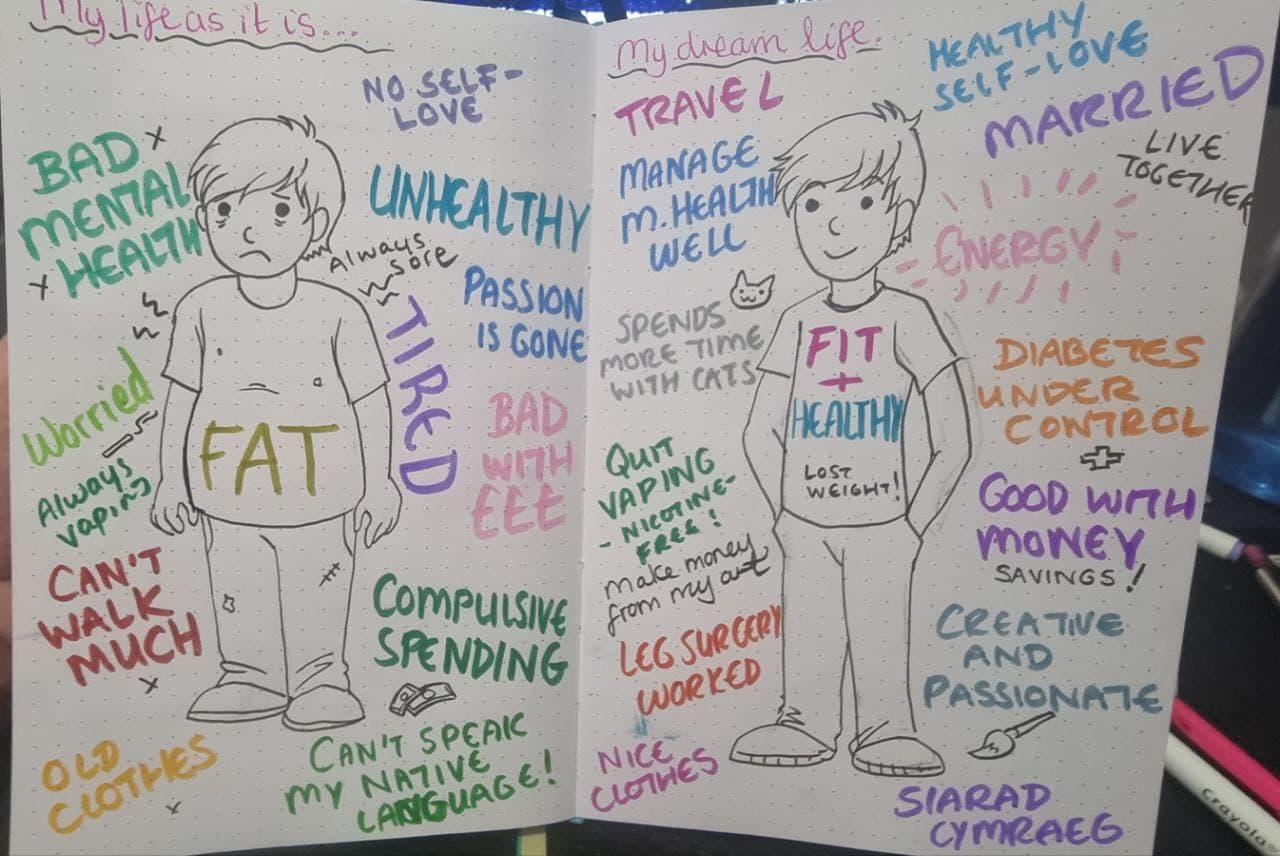 My life as it is...
NO SELF-
LOVE
BAD
MENTAL
HEALTH
UNHEALTHY
Always
sore
PASSION
IS GONE
TIRED
Worried
Always
vaping
FAT
BAD
WITH
£££
CAN'T
WALK
MUCH
COMPULSIVE
SPENDING
OLD
CLOTHES
CAN'T SPEAK
MY NATIVE
LANGUAGE!
My dream life.
TRAVEL
HEALTHY
SELF-LOVE
MARRIED
LIVE
TOGETHER
MANAGE
M. HEALTH
WELL
ENERGY
SPENDS
MORE TIME
WITH CATS
FIT
+
HEALTHY
LOST
WEIGHT!
DIABETES
UNDER
CONTROL
QUIT
VAPING
-NICOTINE-
FREE!
make money
from my art
GOOD WITH
MONEY
SAVINGS!
LEG SURGERY
WORKED
CREATIVE
AND
PASSIONATE
NICE
CLOTHES
SIARAD
CYMRAEG
Crayola